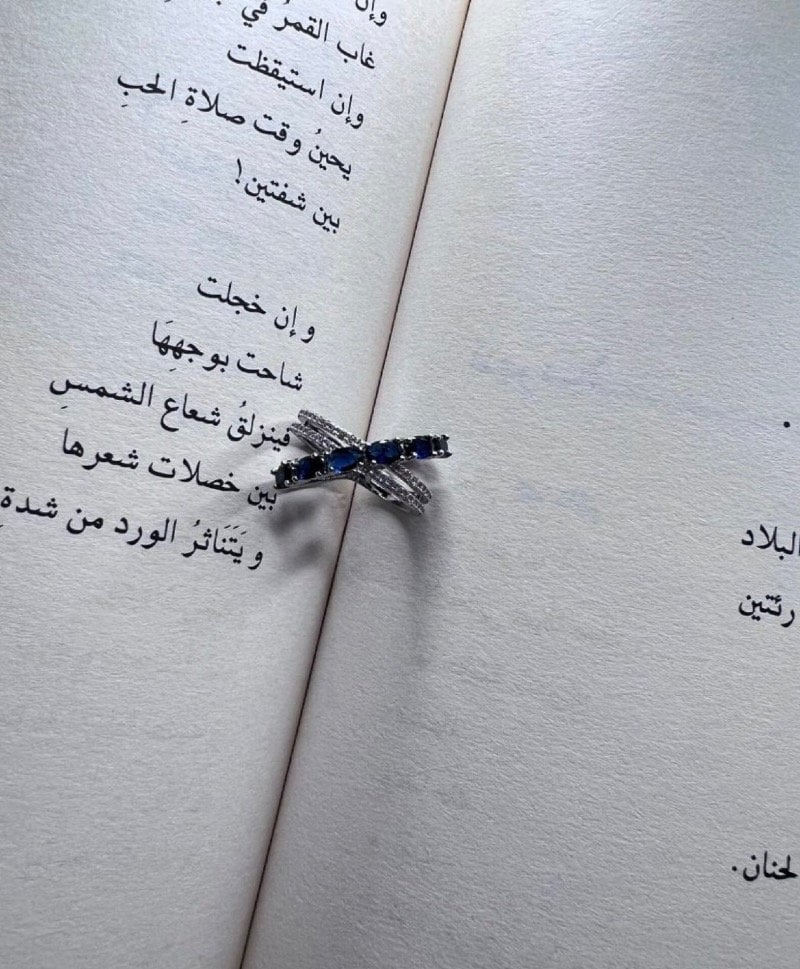 وإن
غاب القمرُ في
وإن استيقظت
يحينُ وقت صلاةِ الحبِ
بين شفتين!
وإن خجلت
شاحت بوجهِهَا
فينزلقُ شعاع الشمسِ
بين خصلات شعرها
ويَتَنَاثرُ الورد من شدةِ
البلاد
رئتين
لحنان.